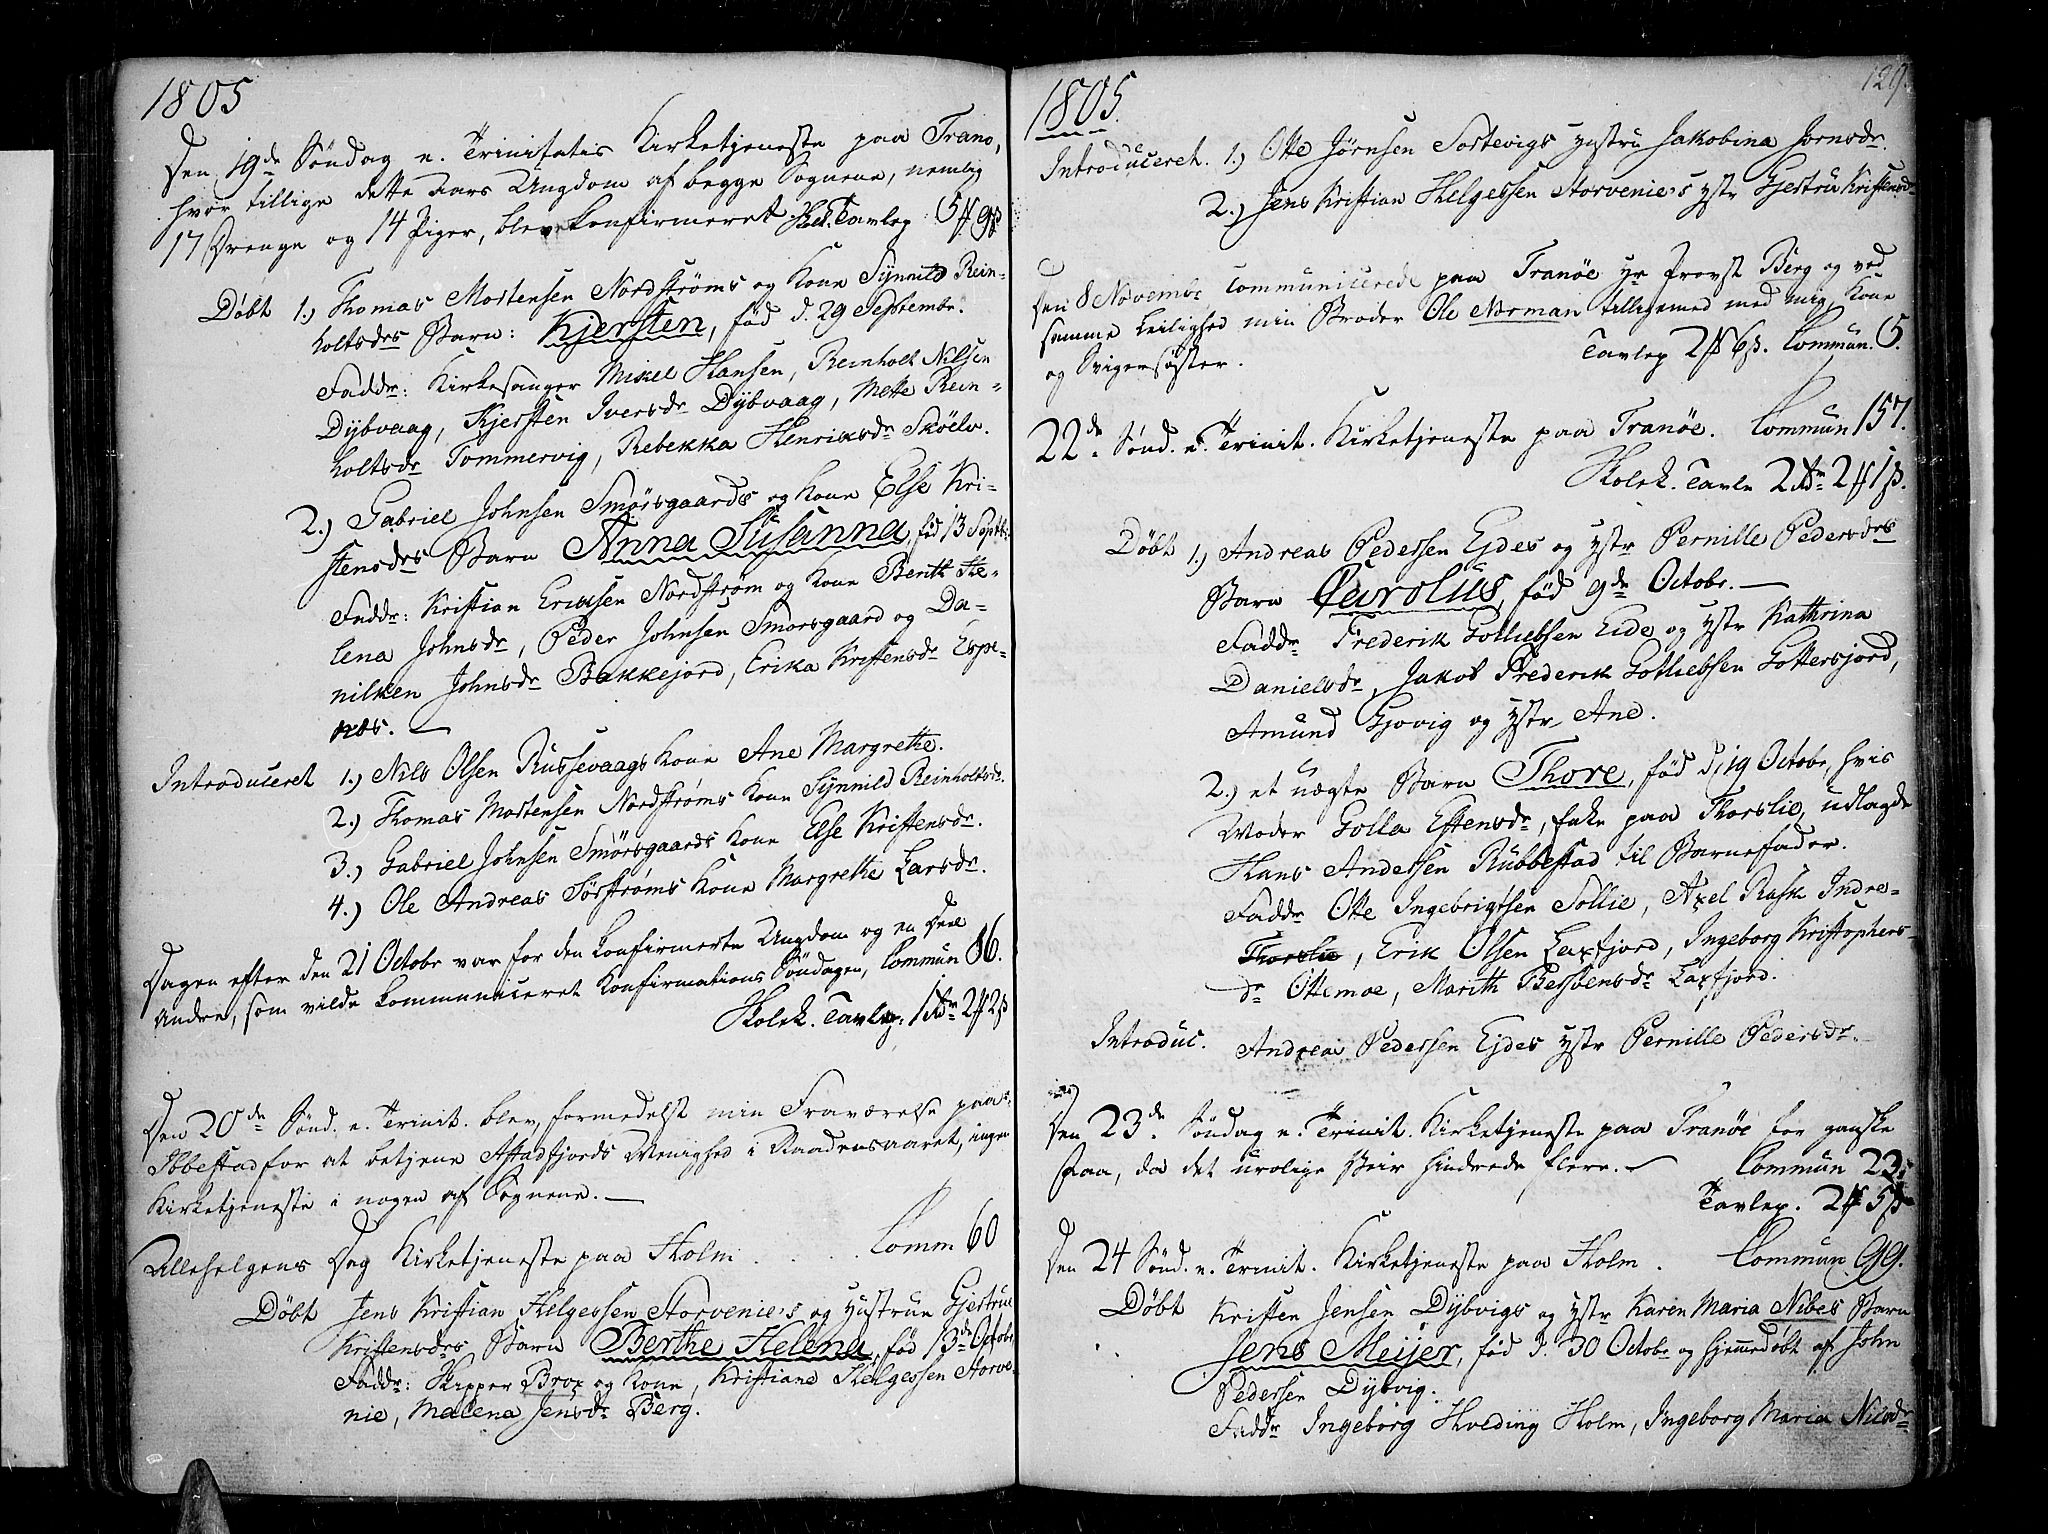 1805
Den 19de Søndag e. Trinitatis Kirketjeneste paa Trano,
hvor tillige dette Aars Ungdom af begge Sognene, nemlig
17 Drenge og 14 Piger, blev konfirmeret. Tavlep.
Døbt 1.) Thomas Mortensen Nordstrøms og Kone Synnild Rein-
holtsdrs Barn: Kjersten, fød d. 29 Septembr.
Faddr: Kirkesanger Mikel Hansen, Reinholt Nilsen
Dybvaag, Kjersten Iversdr Dybvaag, Mette Rein-
holtsdr Tommervig, Rebekka Henriksdr Skøelv.
2.) Gabriel Johnsen Smørsgaards og Kone Else Kri-
stensdrs Barn Anna Susanna, fød 13 Septbr.
Faddr: Kristian Eriksen Nordstrøm og Kone Berith He-
lena Johnsdr, Peder Johnsen Smorsgaard og Da-
nilken Johnsdr Bakkejord, Erika Kristensdr Espe-
nes.
Introduceret 1.) Nils Olsen Russevaags Kone Ane Margrethe.
2.) Thomas Mortensen Nordstrøms Kone Synnild Reinholtsdr.
3.) Gabriel Johnsen Smørsgaards Kone Else Kristensdr.
4.) Ole Andreas Sørstrøms Kone Margrethe Larsdr.
Dagen efter den 21 Octobr var for den konfirmerte Ungdom og en Deel
Andre, som vilde kommuniceret Konfirmations Søndagen, Commun 86.
Skolek. Tavlep:
Den 20de Sønd. e. Trinit. blev, formedelst min Fraværelse paa
Ibbestad for at betjene Astafjords Menighed i Naadensaaret, ingen
Kirketjeneste i nogen af Sognene.
Allehelgens Dag Kirketjeneste paa Holm . . . Comm 60
Døbt Jens Kristian Helgessen Storvenie's og Hustrue Gjertrue
Kristensdrs Barn Berthe Helena, fød 13de Octobr
Faddr: Skipper Brox og Kone, Kristiane Helgessen Storve-
nie, Malena Jensdr Berg.
129.
1805.
Introduceret. 1.) Otte Jørnsen Sortevigs Hustru Jakobina Jornsdr.
2.) Jens Kristian Helgessen Storvenie's Hstr Gjertru Kristensdr
Den 8 Novembr communicerede paa Tranöe Hr Provst Berg og ved
samme Leilighed min Broder Ole Norman tilligemed med mig, Kone
og Svigersøster. Tavlep Commun. 5.
22de Sønd. e. Trinit. Kirketjeneste paa Tranöe. Commun 157.
Skolek. Tavle
Døbt 1.) Andreas Pedersen Ejdes og Hstr Pernille Pedersdrs
Barn Carolius, fød 9de Octobr.
Faddr Frederik Gotliebsen Eide og Hstr Kathrina
Danielsdr, Jakob Frederik Gotliebsen Gottersjord,
Amund Gjovig og Hstr Ane.
2.) et uægte Barn Thore, fød d. 19 Octobr, hvis
Moder Golla Estensdr, paa Thorslie, udlagde
Hans Andersen Rubbestad til Barnefader.
Faddr Otte Ingebrigtsen Sollie, Axel Rask Indre-
Thorslie, Erik Olsen Laxfjord, Ingeborg Kristophers-
dr Ottemoe, Marith Bersvensdr Laxfjord.
Introduc. Andreas Pedersen Ejdes Hstr Pernille Pedersdr.
Den 23de Søndag e. Trinit. Kirketjeneste paa Tranöe for ganske
faa, da det urolige Veir hindrede flere. Commun 23.
Tavlep.
Den 24 Sønd. e. Trinit. Kirketjeneste paa Holm . Commun 99.
Døbt Kristen Jensen Dybvigs og Hstr Karen Maria Nibes Barn
Jens Meijer, fød d. 30 Octobr og hjemmedøbt af John
Pedersen Dybvig.
Faddr Ingeborg Hveding Holm, Ingeborg Maria Nilsdr